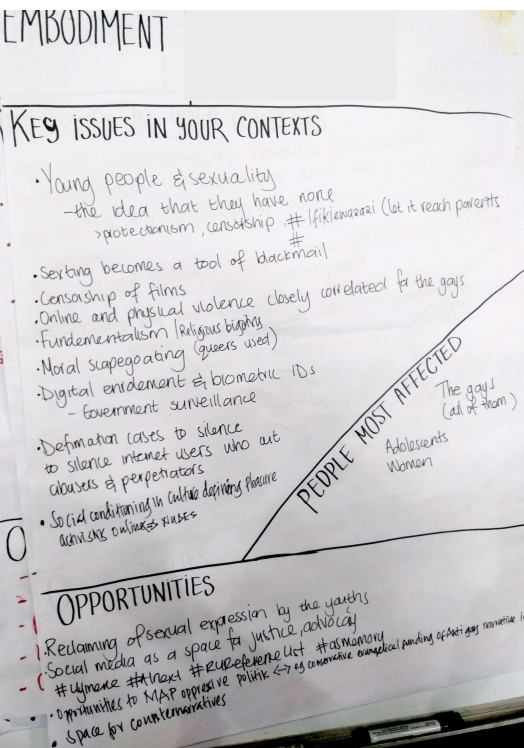 EMBODIMENT
KEY ISSUES IN YOUR CONTEXTS
• Young people & sexuality
- the idea that they have none
> protectionism, censorship # Ifikiewazazi (let it reach parents
#
• Sexting becomes a tool of blackmail
• Censorship of films
• Online and physical violence closely correlated for the gays
• Fundementalism / Religious bigotry
• Moral scapegoating (queers used)
• Digital enrolement & biometric IDs
- Government surveillance
• Defimation cases to silence
to silence internet users who out
abusers & perpetrators
• Social conditioning in culture depining pleasure
activists online &
PEOPLE MOST AFFECTED
The gays
(all of them)
Adolescents
Women
OPPORTUNITIES
• Reclaiming of sexual expression by the youths
• Social media as a space for justice, advocacy
#AInext #RUReferenceList #asmemory
• Opportunities to MAP oppressive politik <-> eg conservative evangelical funding of Anti gay narrative
• Space for counternarratives